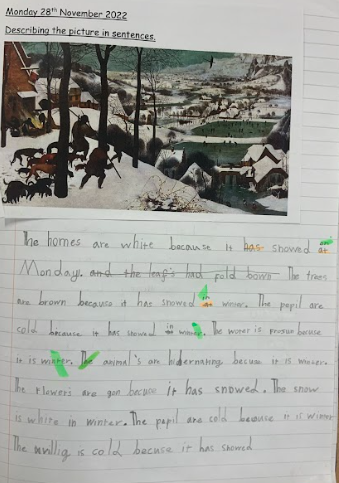 Monday 28th November 2022
Describing the picture in sentences.
The homes are white because it has snowed on
Monday. and the leaf's had fold bown The trees
are brown because it has snowed in winter. The pepil are
cold because it has snowed in the winter. The water is because
it is winter. The animal's are hibernating because it is winter.
The flowers are gon because it has snowed. The snow
is white in winter. The pepil are cold because it is winter
The is cold becuse it has snowed